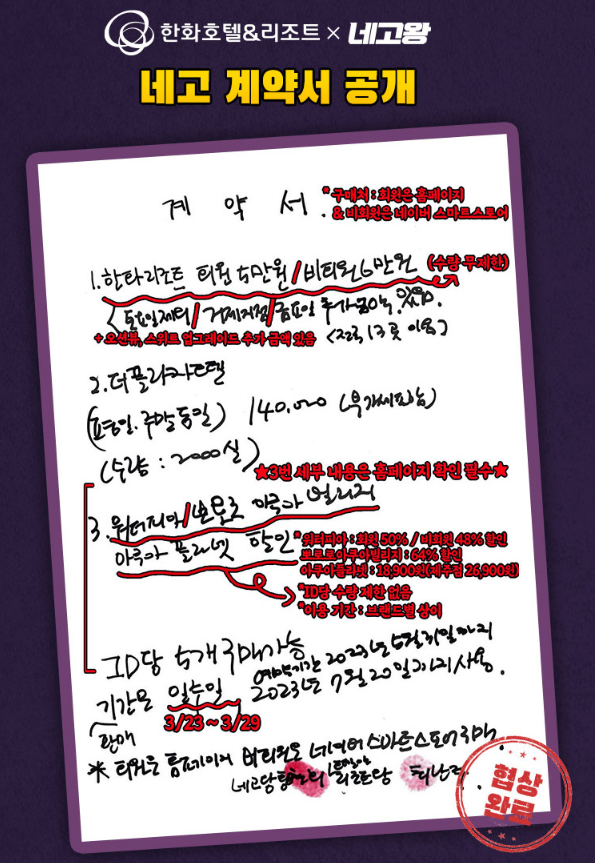 한화호텔&리조트 × 네고왕
네고 계약서 공개
계 약 서.
* 구매처 : 회원은 홈페이지
& 비회원은 네이버 스마트스토어
1. 한화리조트 회원 5만원 / 비회원 6만원 (수량 무제한)
토요일제외 / 거제지점 / 금요일 추가금액 있음.
+ 오션뷰, 스위트 업그레이드 추가 금액 있음 <전국 13곳 이용>
2. 더플라자호텔
(평일.주말 동일) 140,000 (부가세포함)
(수량 : 2000실)
★3번 세부 내용은 홈페이지 확인 필수★
3. 워터피아/뽀로로 아쿠아 빌리지
아쿠아 플라넷 할인
*워터피아 : 회원 50% / 비회원 48% 할인
뽀로로아쿠아빌리지 : 64% 할인
아쿠아플라넷 : 18,900원(제주점 26,900원)
*ID당 수량 제한 없음
*이용 기간 : 브랜드별 상이
ID당 5개 구매가능
예약기간 2023년 5월 31일까지
기간은 일주일 2023년 7월 20일까지 사용.
판매 3/23 ~ 3/29
* 회원은 홈페이지 비회원은 네이버 스마트스토어 구매.
협상
완료